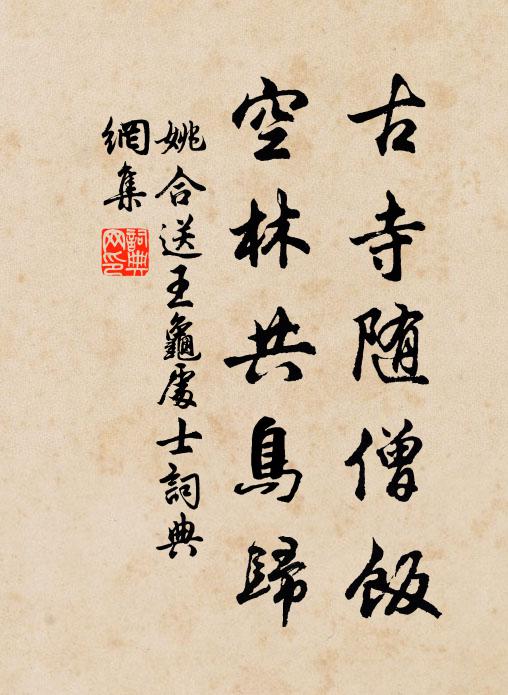 古寺随僧飯
空林共鳥歸
姚合送王龜處士詞典
網集
詞典網印